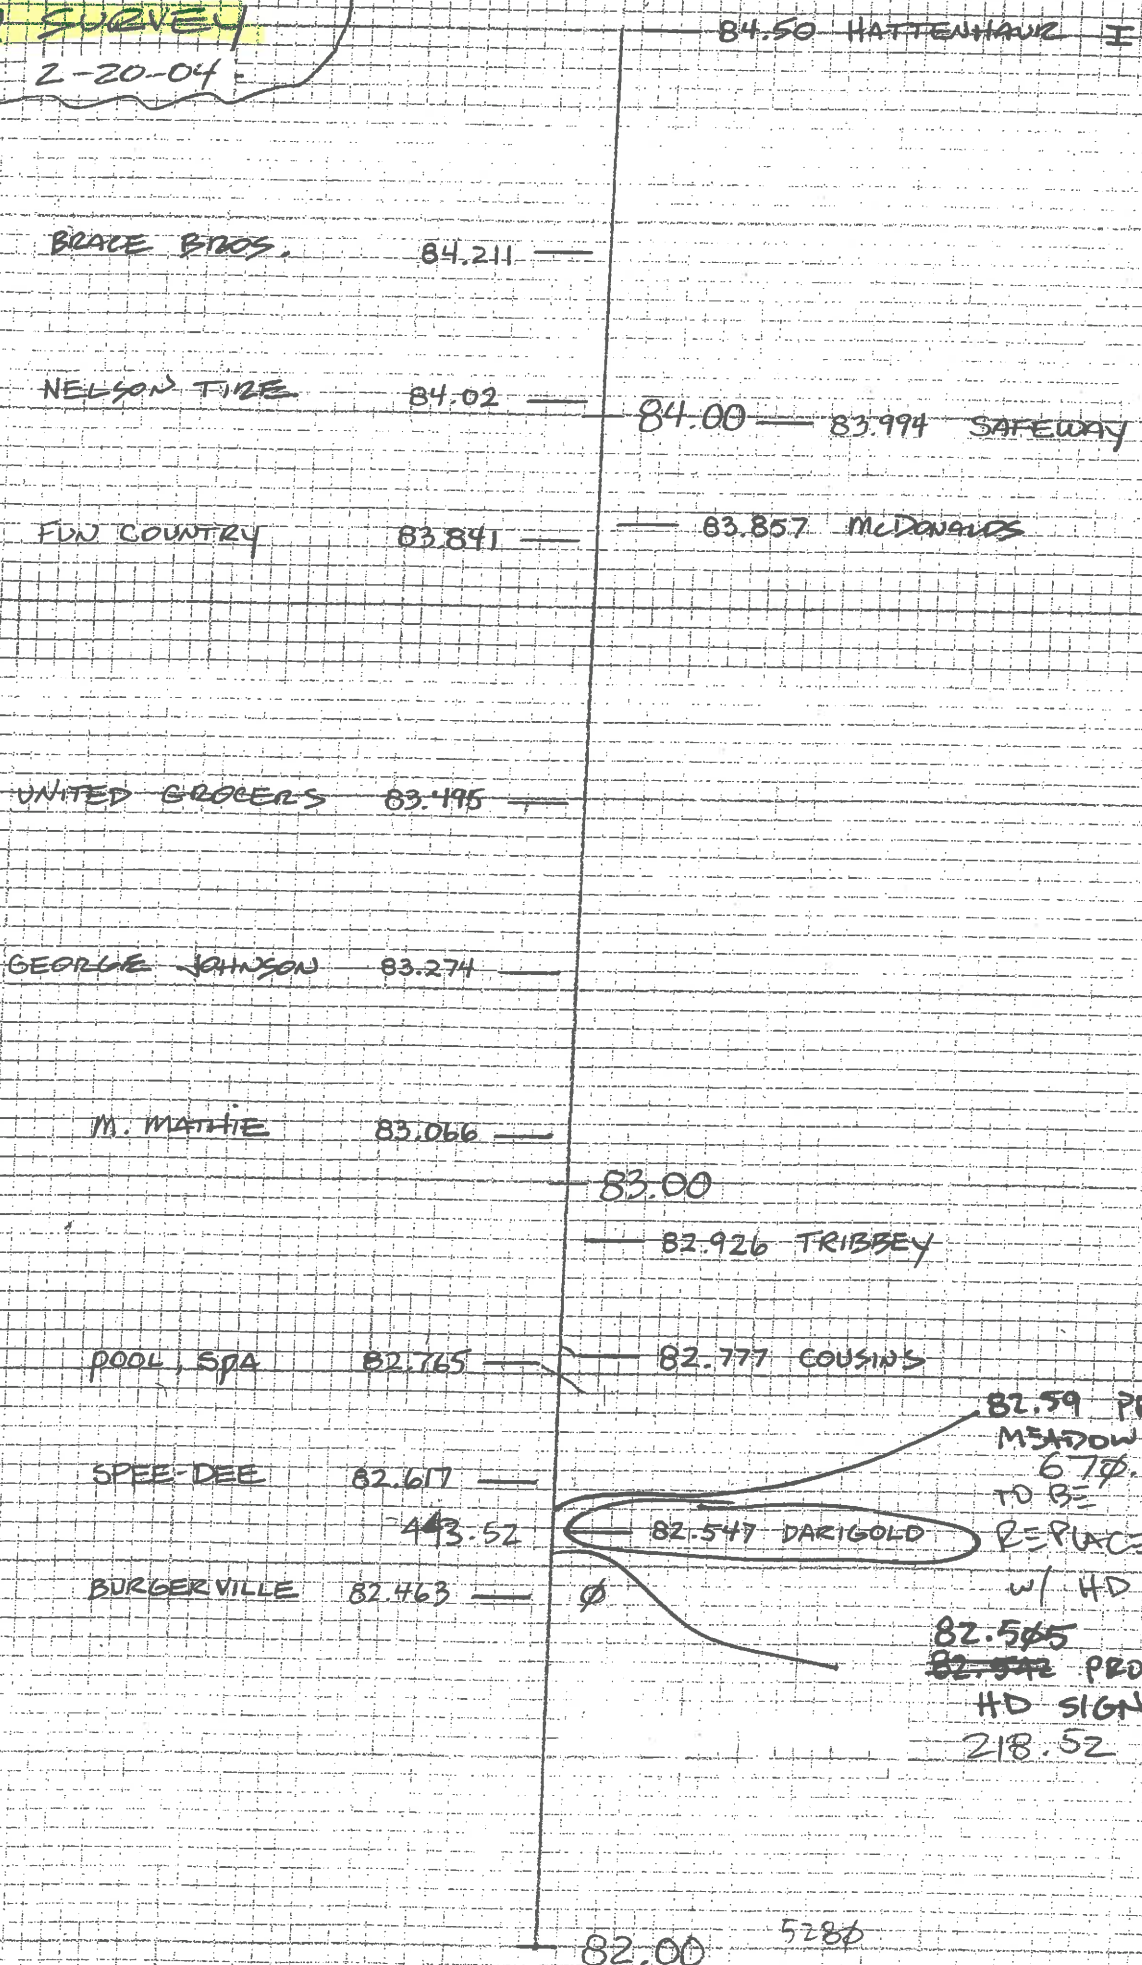 SURVEY
2-20-04
84.50 HATTENHAUR I
BRACE BROS. 84.211
NELSON TIRE 84.02
84.00
83.994 SAFEWAY
FUN COUNTRY 83.841
83.857 McDONALDS
UNITED GROCERS 83.495
GEORGE JOHNSON 83.274
M. MATHIE 83.066
83.00
82.926 TRIBBEY
POOL, SPA 82.765
82.777 COUSINS
82.59 PR
MEADOW
670.
TO BE
REPLACE
W/ HD
SPEE-DEE 82.617
443.52
82.547 DARIGOLD
BURGERVILLE 82.463
Ø
82.5Ø5
82.542 PRO
HD SIGN
218.52
528Ø
82.00